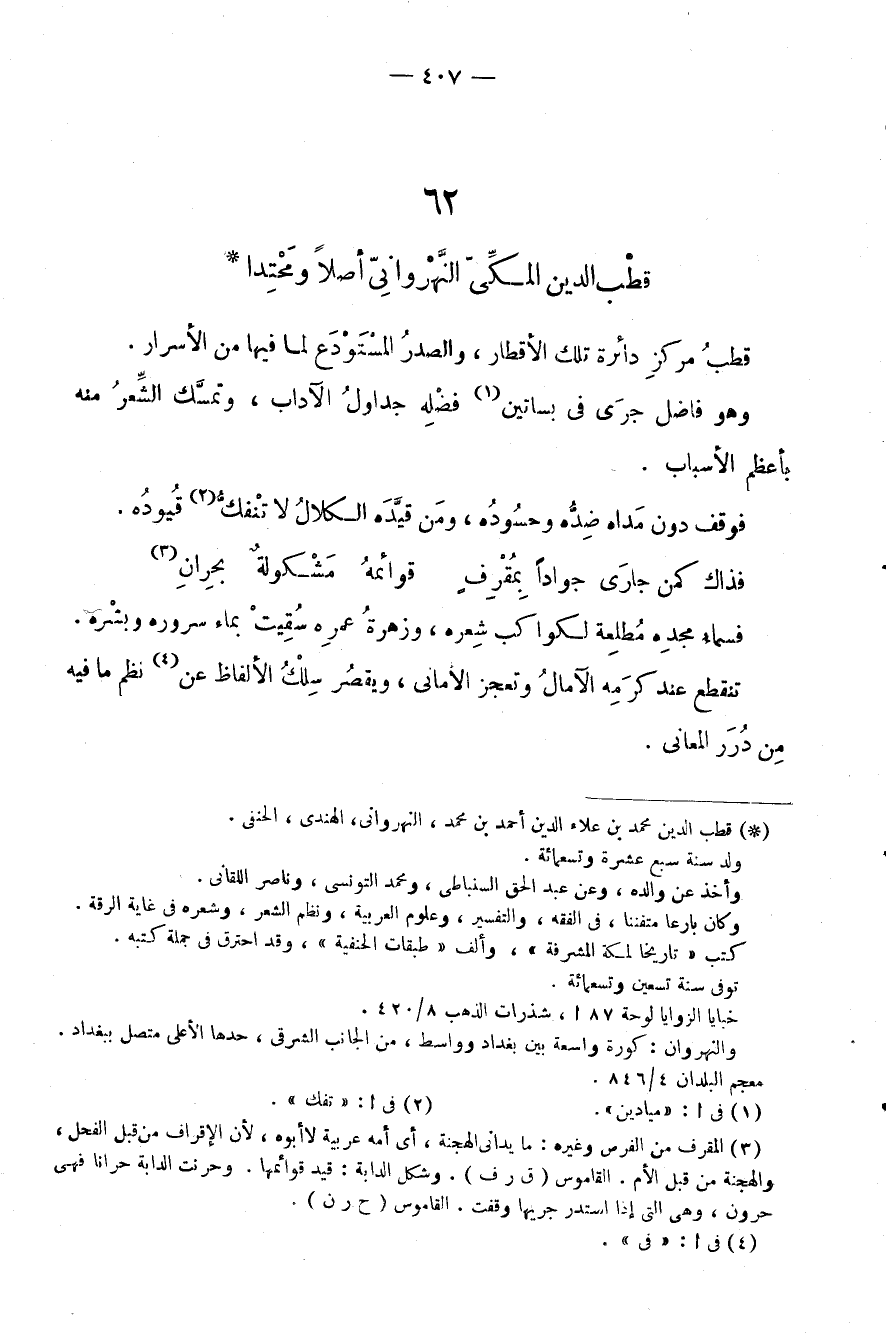 — ٤٠٧ —
٦٢
قطْب الدين المكِّىّ النَّهْروانِىّ أصلاً ومَحْتِدا *
قطبُ مركزِ دائرة تلك الأقطار ، والصدرُ المسْتَوْدَع لما فيها من الأسرار .
وهو فاضل جرَى فى بساتين(١) فضْلِه جداولُ الآداب ، وتمسَّك الشِّعرُ منه
بأعظم الأسباب .
فوقف دون مَداه ضِدُّه وحسُودُه ، ومَن قيَّدَه الكلالُ لا تنْفكُّ(٢) قُيودُه .
فذاك كمن جارَى جواداً بِمُقْرِفٍ قوائمهُ مَشْكولةٌ بحِرانِ(٣)
فسماء مجدِه مُطلِعة لكواكب شِعره ، وزهرةُ عمرِه سُقِيتْ بماء سروره وبشْره .
تنقطع عند كرَمِه الآمالُ وتعجز الأمانى ، ويقصُر سِلْكُ الألفاظ عن(٤) نظم ما فيه
مِن دُرَر المعانى .
(*) قطب الدين محمد بن علاء الدين أحمد بن محمد ، النهروانى، الهندى ، الحنفى .
ولد سنة سبع عشرة وتسعمائة .
وأخذ عن والده ، وعن عبد الحق السنباطى ، ومحمد التونسى ، وناصر اللقانى .
وكان بارعا متفننا ، فى الفقه ، والتفسير ، وعلوم العربية ، ونظم الشعر ، وشعره فى غاية الرقة .
كتب « تاريخا لمكة المشرفة » ، وألف « طبقات الحنفية » ، وقد احترق فى جملة كتبه .
توفى سنة تسعين وتسعمائة .
خبايا الزوايا لوحة ٨٧ ا ، شذرات الذهب ٤٢٠/٨ .
والنهروان : كورة واسعة بين بغداد وواسط ، من الجانب الشرقى ، حدها الأعلى متصل ببغداد .
معجم البلدان ٨٤٦/٤ .
(١) فى ا : «ميادين». (٢) فى ا : « تفك » .
(٣) المقرف من الفرس وغيره : ما يدانى الهجنة ، أى أمه عربية لا أبوه ، لأن الإقراف من قبل الفحل ،
والهجنة من قبل الأم . القاموس ( ق ر ف ) . وشكل الدابة : قيد قوائمها . وحرنت الدابة حرانا فهى
حرون ، وهى التى إذا استدر جريها وقفت . القاموس ( ح ر ن ) .
(٤) فى ا : « فى » .